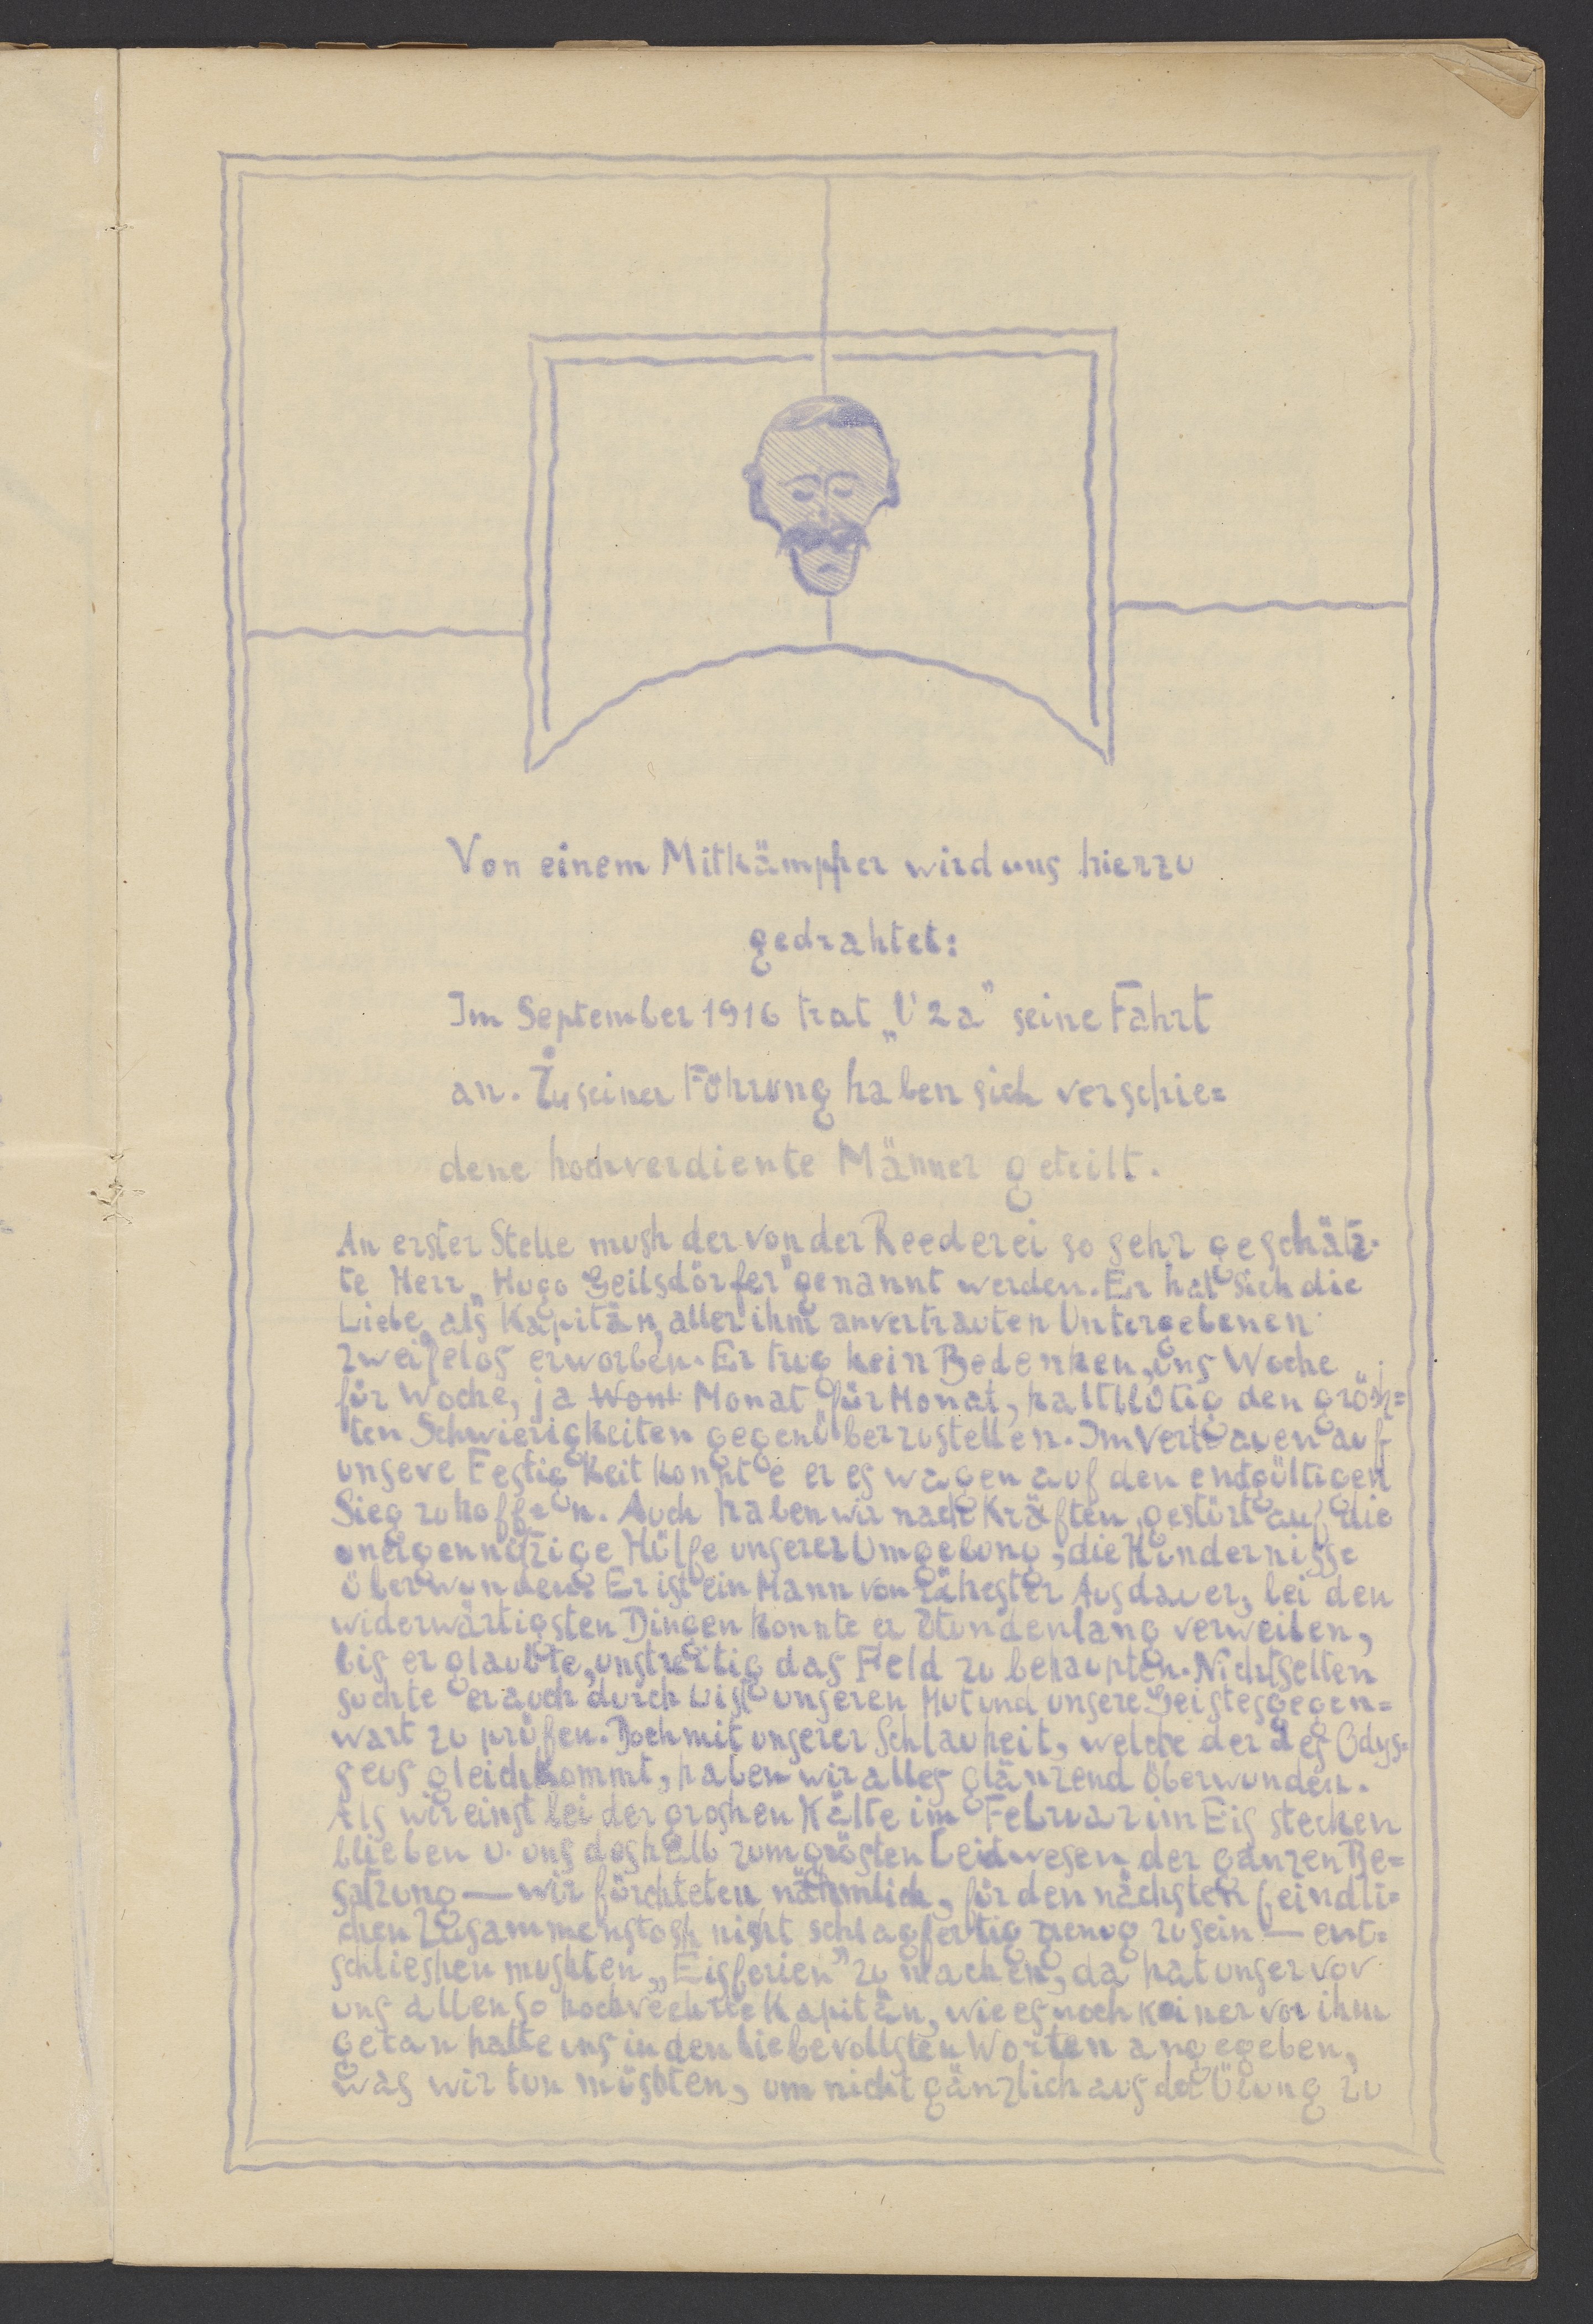 Von einem Mitkämpfer wird uns hierzu
gedrahtet:
Im September 1916 trat „U2a" seine Fahrt
an. Zu seiner Führung haben sich verschie=
dene hochverdiente Männer geteilt.
An erster Stelle mush der von der Reederei so sehr geschätz-
te Herr „Hugo Geilsdörfer" genannt werden. Er hat sich die
Liebe, als Kapitän, aller ihm anvertrauten Untergebenen
zweifelos erworben. Er trug kein Bedenken, uns Woche
für Woche, ja Wont Monat für Monat, kaltblütig den grösh=
ten Schwierigkeiten gegenüberzustellen. Im Vertrauen auf
unsere Festigkeit konnte er es wagen auf den endgültigen
Sieg zu hoffen. Auch haben wir nach Kräften, gestürt auf die
uneigennützige Hülfe unserer Umgebung, die Hindernisse
überwunden. Er ist ein Mann von zähester Ausdauer, bei den
widerwärtigsten Dingen konnte er Stundenlang verweilen,
bis er glaubte, unstreitig das Feld zu behaupten. Nicht selten
suchte er auch durch List unseren Mut und unsere Geistesgegen=
wart zu prüfen. Doch mit unserer Schlauheit, welche der des Odys=
seus gleichkommt, haben wir alles glänzend überwunden.
Als wir einst bei der groshen Kälte im Februar im Eis stecken
blieben u. uns deshalb zum grösten Leidwesen der ganzen Be=
satzung — wir fürchteten nähmlich, für den nächsten feindli=
chen Zusammenstosh nicht schlagfertig genug zu sein — ent=
schlieshen mushten, „Eisferien" zu machen, da hat unser von
uns allen so hochverehrte Kapitän, wie es noch keiner vor ihm
getan hatte uns in den liebevollsten Worten angegeben,
was wir tun müshten, um nicht gänzlich aus der Übung zu